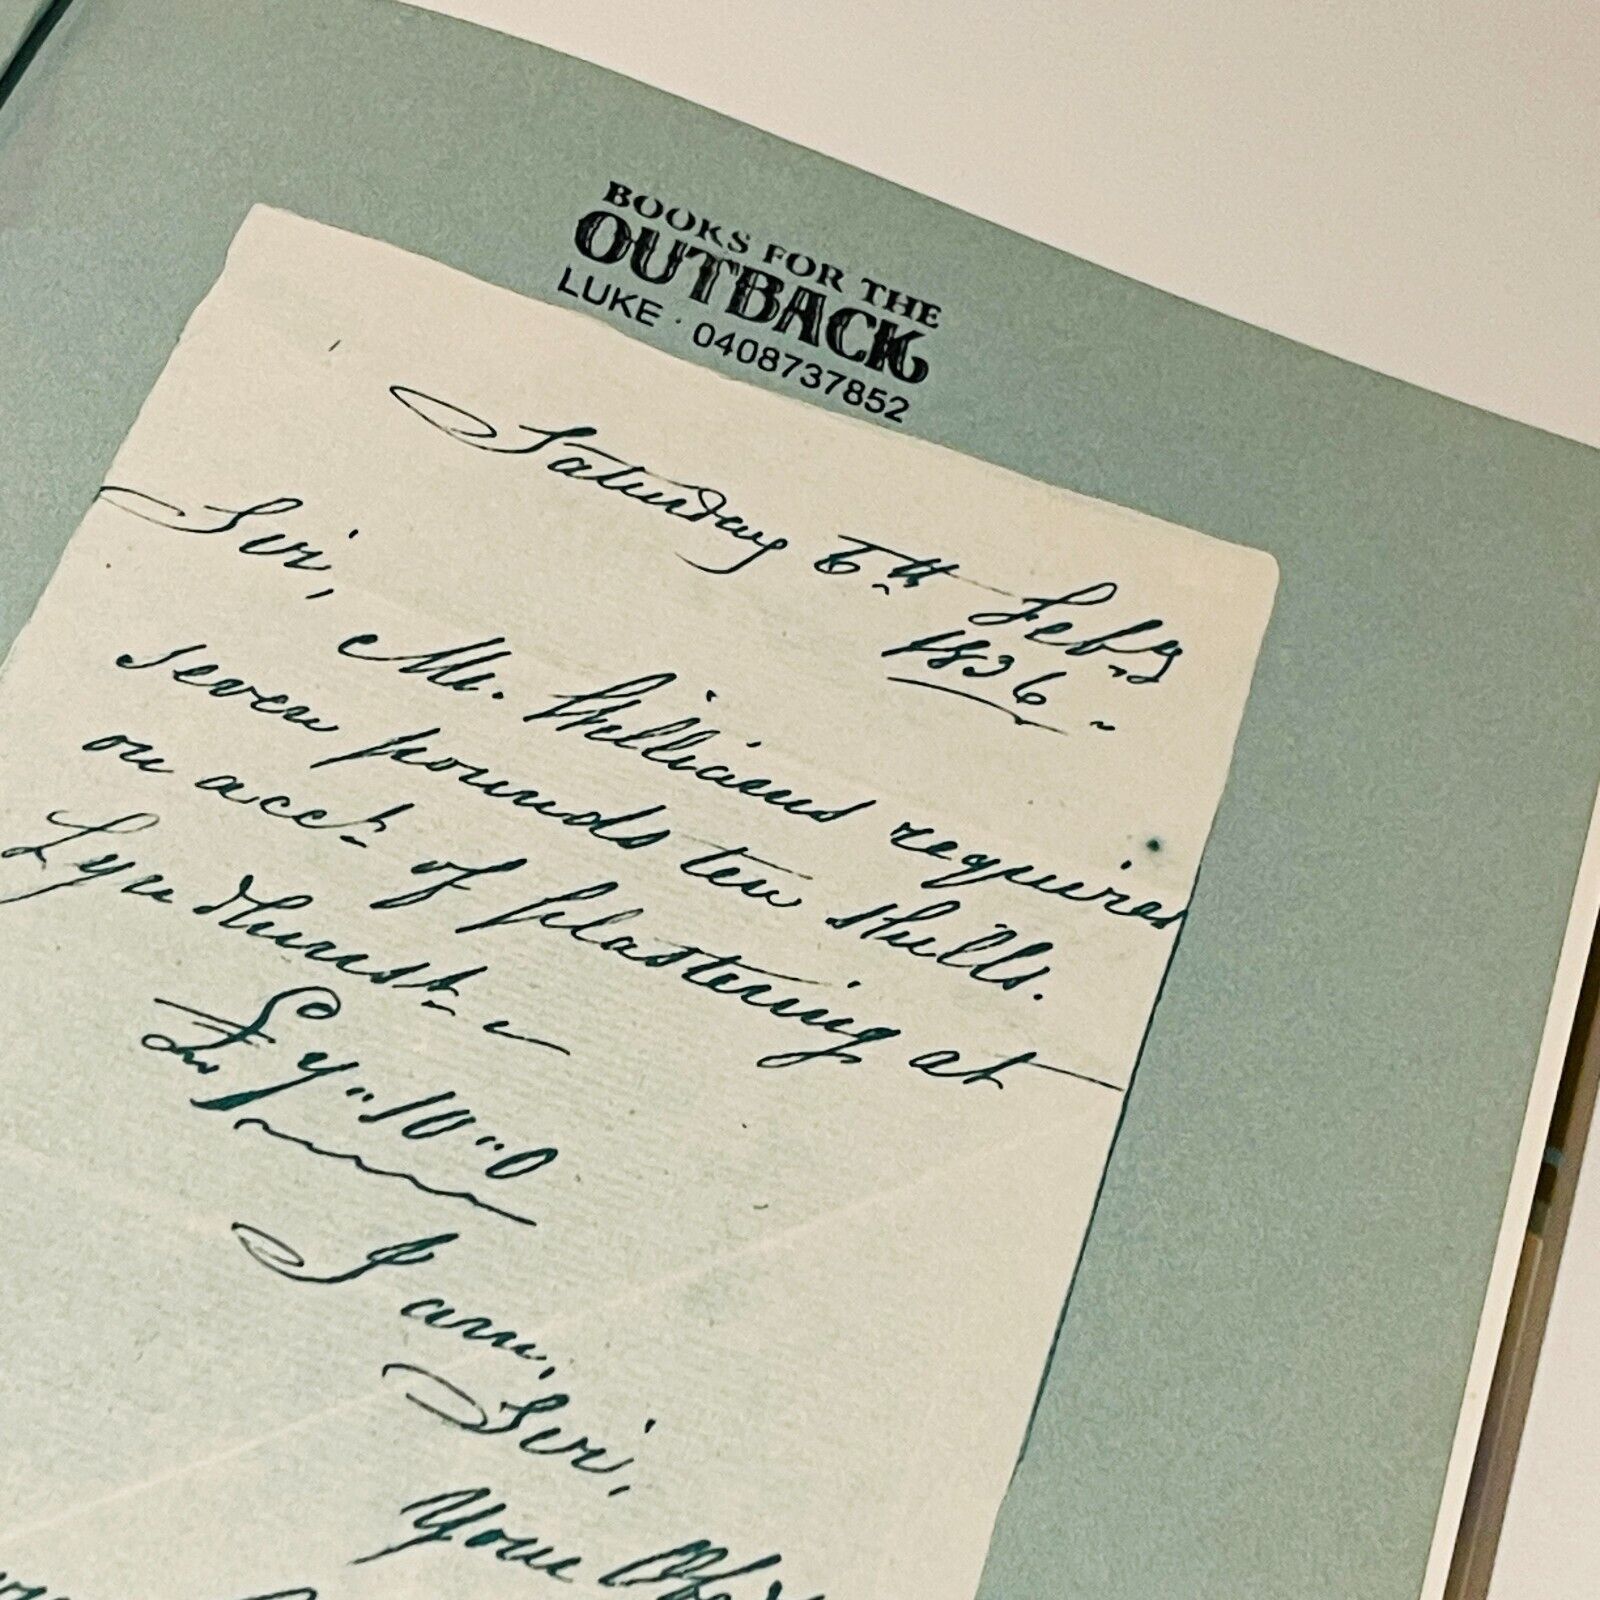 BOOKS FOR THE
OUTBACK
LUKE · 0408737852
Saturday 6th Feby
1836
Sir,
Mr. Williams requires
seven pounds ten shills.
on acct. of plastering at
Lyndhurst
£7"10"0
I am,
Sir,
Your Obedt